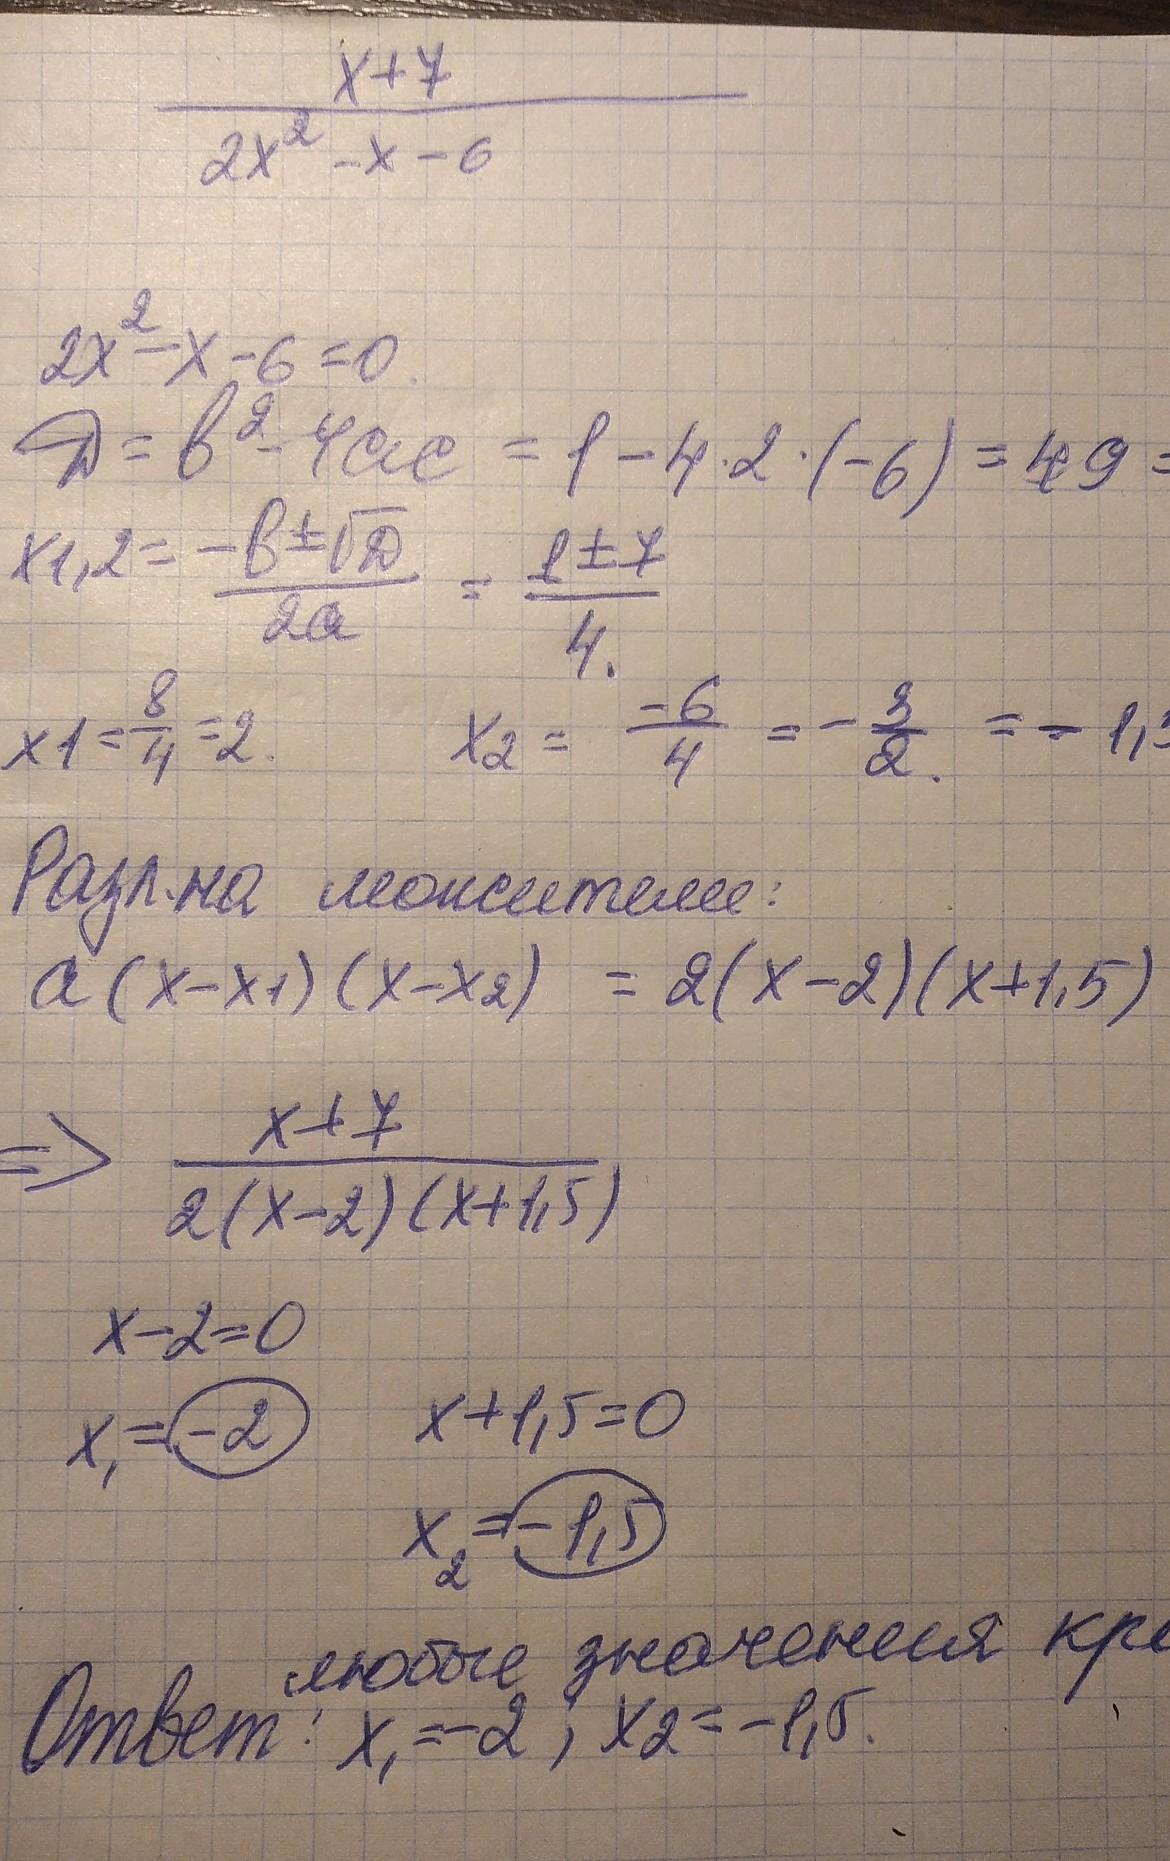 x+7
2x² -x-6
2x²-x-6=0.
D = b²-4ac = 1-4·2·(-6) = 49 =
x1,2 = -b±√D / 2a = 1±7 / 4.
x1 = 8/4 = 2. x2 = -6/4 = -3/2. = - 1,
Разл. на множители:
a(x-x1)(x-x2) = 2(x-2)(x+1,5)
=> x+7 / 2(x-2)(x+1,5)
x-2=0
x₁=-2 x+1,5=0
x₂=-1,5
любые значения
Ответ: x₁=-2; x2=-1,5.